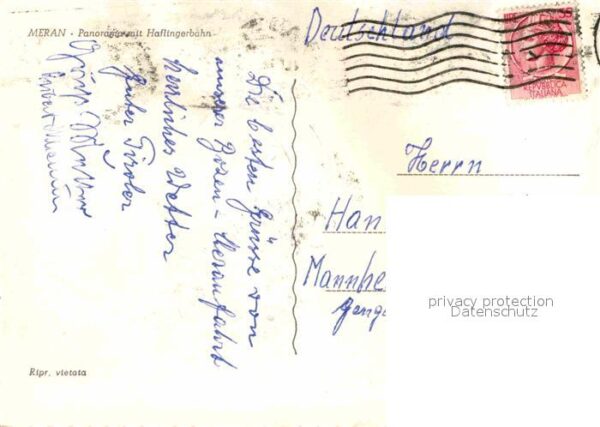 MERAN - Panorama mit Haflingerbahn
Deutschland
REPVBBLICA
ITALIANA
Die besten Grüsse von
unserer Bozen - Meranfahrt
herrliches Wetter
guter Tiroler
Herrn
Han
Mannhe
privacy protection
Datenschutz
Ripr. vietata